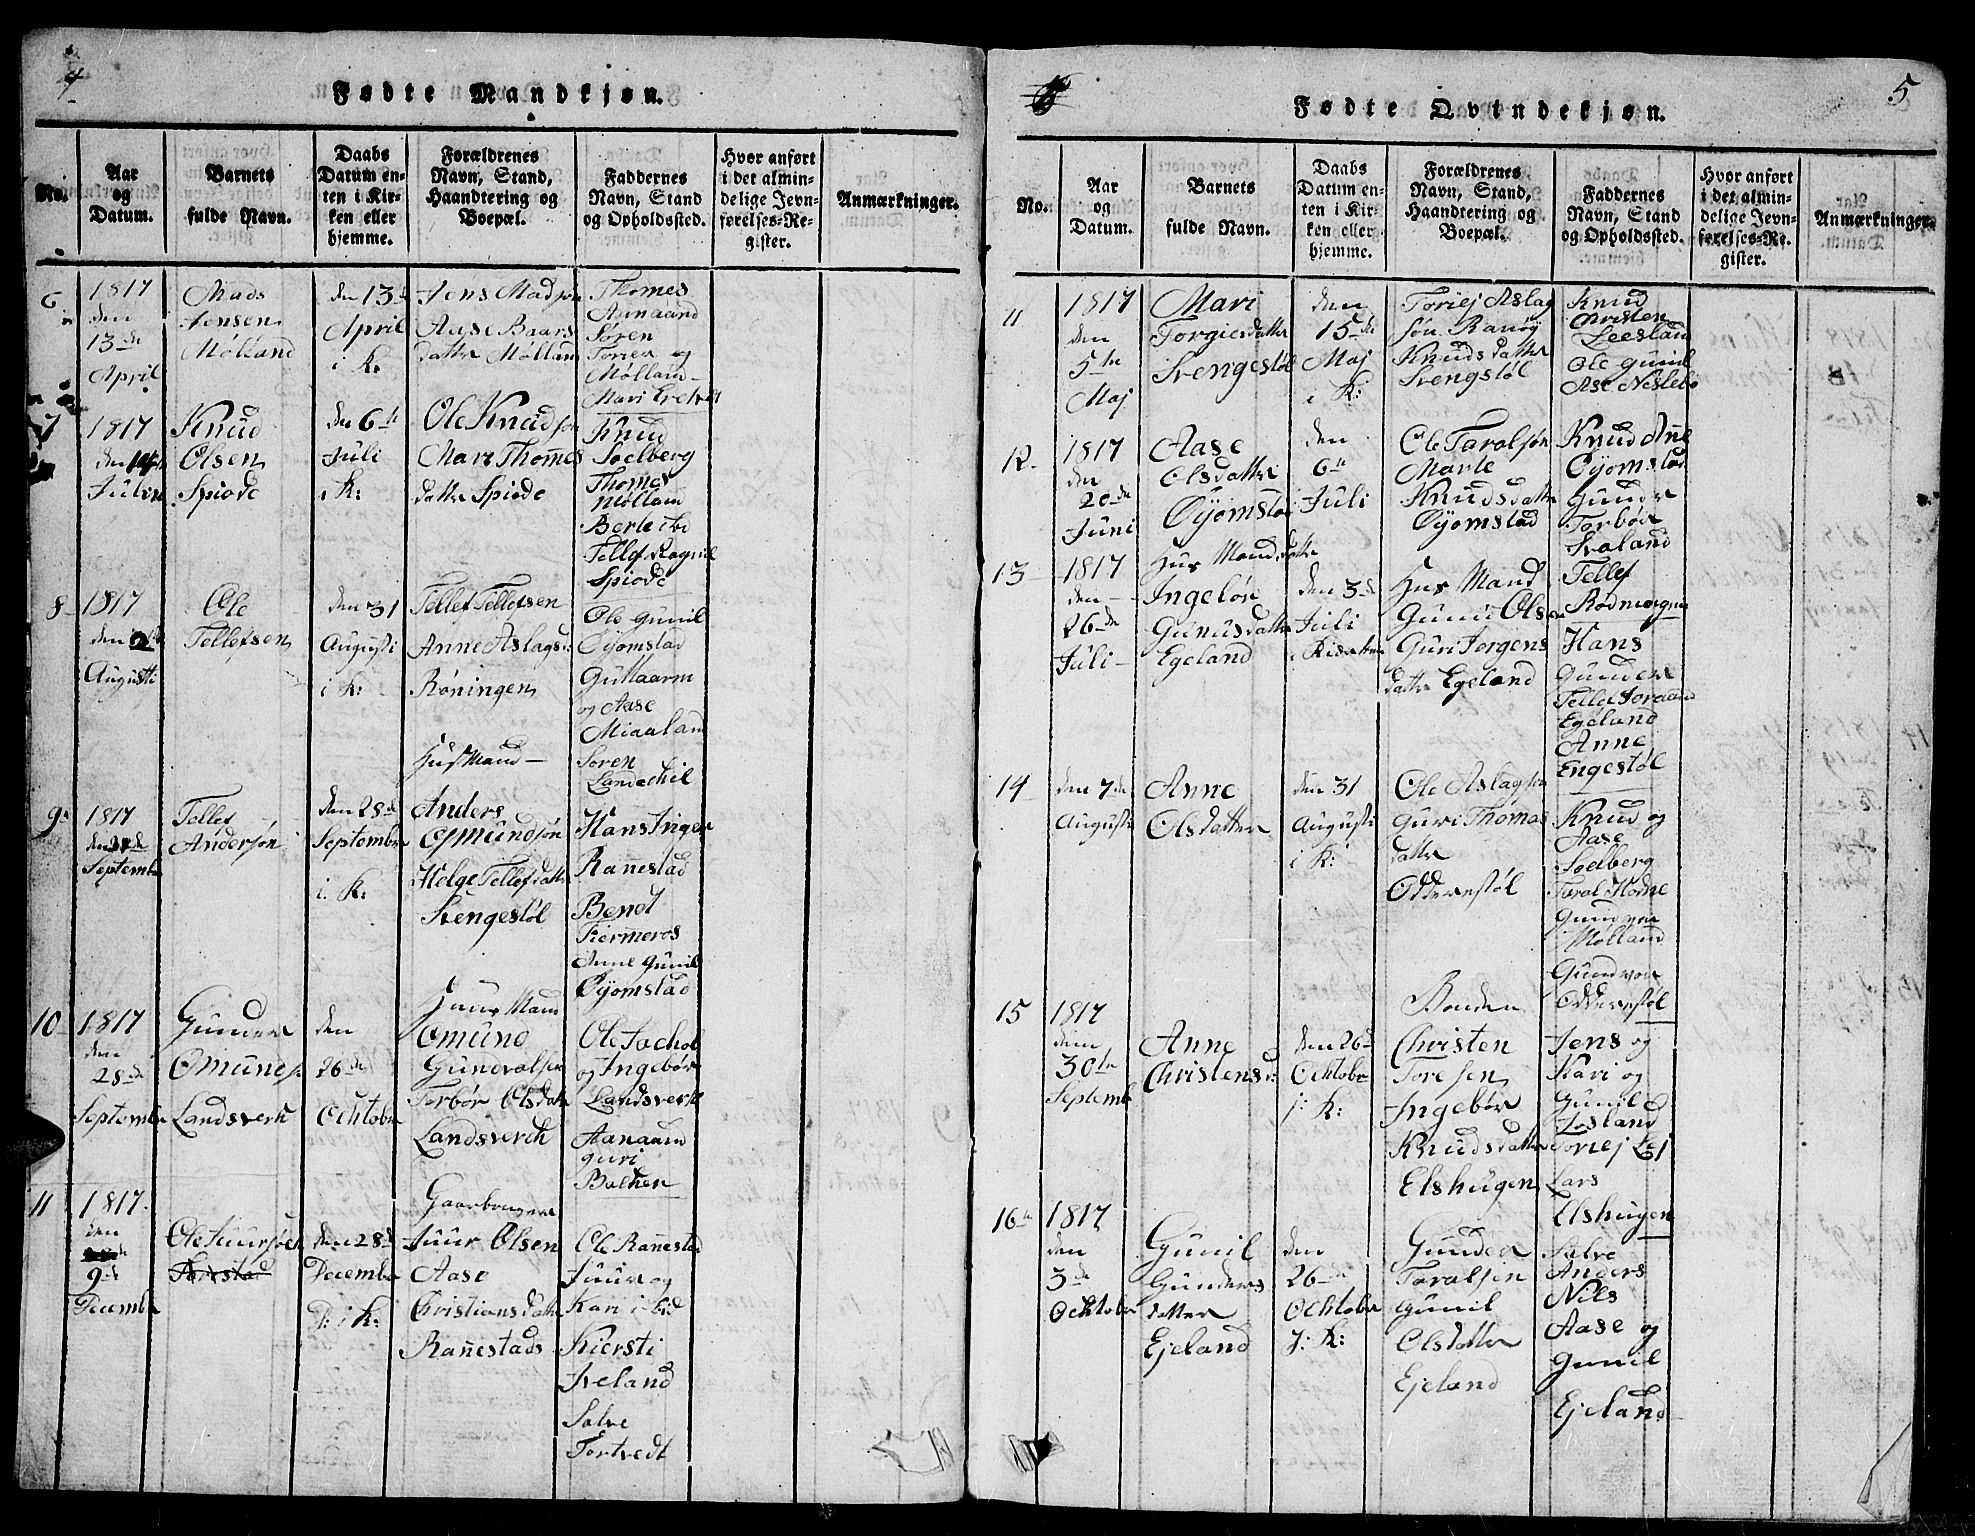 4
Fødte Mandkjøn.
No.
Aar
og
Datum.
Barnets
fulde Navn.
Daabs
Datum en-
ten i Kir-
ken eller
hjemme.
Forældrenes
Navn, Stand,
Haandtering og
Boepæl.
Faddernes
Navn, Stand
og Opholdssted.
Hvor anført
i det almin-
delige Jevn-
førelses-Re-
gister.
Anmærkninger.
6
1817
den
13de
April
Mads
Jensen
Mølland
den 13de
April
i K:
Jens Madsøn
Aase Baars
datter Mølland
Thomes
Aanaand
Søren
Torier og
Mølland
Mari
7
1817
den
Juli
Knud
Olsen
Spiode
den 6te
Juli
i K:
Ole Knudsøn
Mari Thomes
datter Spiode
Knud
Soelberg
Thomes
Møllam
Berte ibd
Tellef Ragnil
Spiode
8
1817
den
Augusti
Ole
Tellefsen
den 31
Augusti
i K:
Tellef Tellefsen
Anne Aslagsd:
Røningen
Husmand
Ole Gunil
Øyomstad
Guttaarm
og Aase
Miaaland
Søren
Landechil
9
1817
September
Tellef
Andersøn
den 28de
September
i K:
Anders
Omundsøn
Helge Tellefsdatter
Svengestøl
Hans Inger
Rannestad
Bendt
Fiermeros
Anne Gunil
Øyomstad
10
1817
den
28de
September
Gunder
Omunds
Landsverk
den
26de
Ochtober
Huus Mand
Omund
Gundvalsen
Torbør Olsdatter
Landsverch
Ole Jochob
og Ingebør
Landsverk
Aanaaun
Guri
Baltken
11
1817
den
9de
December
Ole Juursøn
den 28de
December
D: i K:
Gaardbruger
Juur Olsen
Aase
Christiansdatter
Rannestads
Ole Rannestad
Juur og
Kari ibid
Kiersti
Iveland
Salve
Tortvedt
5
Fødte Qvindekjøn.
No.
Aar
og
Datum.
Barnets
fulde Navn.
Daabs
Datum en-
ten i Kir-
ken eller
hjemme.
Forældrenes
Navn, Stand,
Haandtering og
Boepæl.
Faddernes
Navn, Stand
og Opholdssted.
Hvor anført
i det almin-
delige Jevn-
førelses-Re-
gister.
Anmærkninger.
11
1817
den
5te
Maj
Mari
Torgiersdatter
Svengestøl
den
15de
Maj
i K:
Toriej Aslag
søn Ranøy
Knudsdatter
Svengstøl
Knud
Christen
Leesland
Ole Gunil
Ase
12
1817
den
20de
Juni
Aase
Olsdatter
Øyomstad
den
6te
Juli
Ole Taralsøn
Marte
Knudsdatter
Øyomstad
Knud Anne
Øyomstad
Gunder
Torbør
Svaland
13
1817
den
26de
Juli
Hus Mands datter
Ingelør
Gunusdatter
Egeland
den 3de
Juli
i Kirken
Hus Mand
Gunu Olsen
Guri Jørgens
datter Egeland
Tellef
Rodmorgun
Hans
Gunder
Tellef
Egeland
Anne
Engestøl
14
den 7de
Augusti
Anne
Olsdatter
den 31
Augusti
i K:
Ole Aslagsøn
Guri Thomas
datter
Odderestøl
Knud og
Aase
Soelberg
Taral Hodne
Gunder
Mølland
Gundvor
Odderestøl
15
1817
den
30te
September
Anne
Christensd:
den 26de
Ochtober
j: K:
Bonden
Christen
Toresen
Ingebør
Knudsdatter
Elshugen
Jens og
Kari og
Gunil
Losland
Toriej Lej
Lars
Elshugen
16
1817
den
3de
Ochtober
Gunil
Gunders
datter
Ejeland
den
26de
Ochtober
j: K:
Gunder
Taralsen
Gunil
Olsdatter
Ejeland
Salve
Anders
Nils
Aase og
Gunil
Ejeland